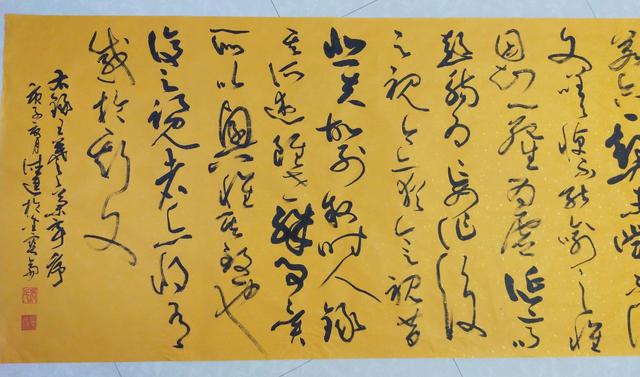 若合一契未嘗不臨
文嗟悼不能喻之於懷
固知一死生為虛誕齊
彭殤為妄作後
之視今亦猶今之視昔
悲夫故列敘時人錄
其所述雖世殊事異
所以興懷其致一也
後之覽者亦將有
感於斯文
右錄王羲之蘭亭序
庚子月於齋